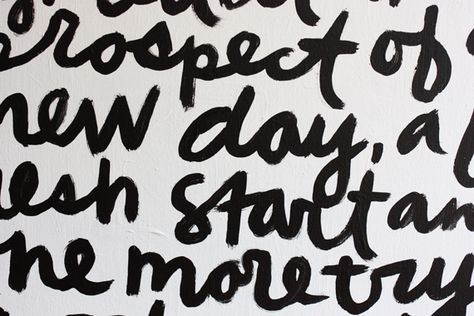 prospect of
new day, a
esh start an
ne more try